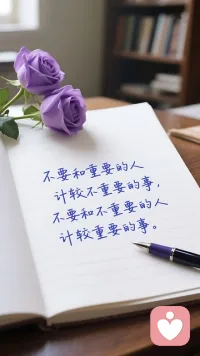 不要和重要的人
计较不重要的事，
不要和不重要的人
计较重要的事。